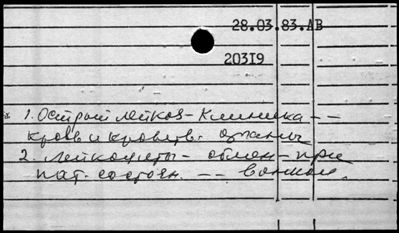 28.03.83.АВ
20319
1. Острый лейкоз - Клиника --
кровь и кроветв. органы
2. Лейкоциты - обмен - при
пат. состоян. --